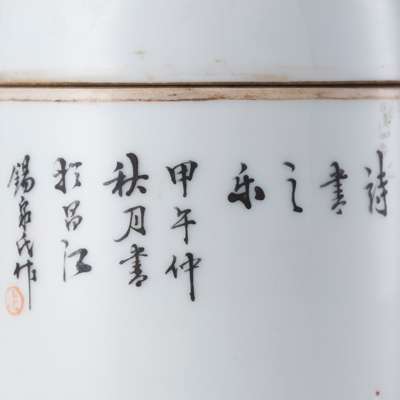 詩
書
之
乐
甲午仲
秋月書
於昌江
錫泉氏作